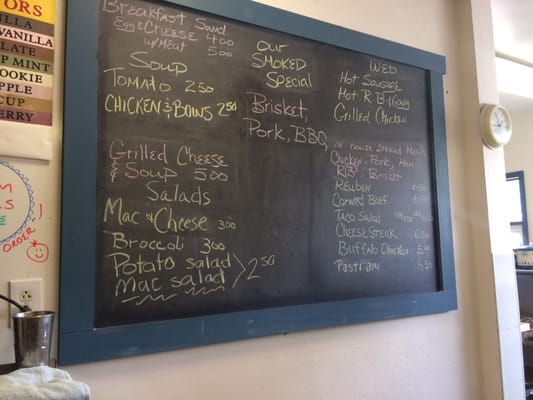 TORS
ILLA
VANILLA
LATE
P MINT
OOKIE
PPLE
CUP
ERRY
Breakfast Sand
Egg & Cheese 400
w/ Meat 500
Soup
Tomato 250
Chicken & Bows 250
Grilled Cheese
& Soup 500
Salads
Mac & Cheese 300
Broccoli 300
Potato salad
Mac salad > 250
Our
Smoked
Special
Brisket,
Pork, BBQ,
Wed
Hot Sausage
Hot R B (Gravy
Grilled Chicken
In house smoked Meats
Chicken, Pork, Ham
Ribs, Brisket
Reuben
Corned Beef
Taco Salad
Cheese Steak
Buffalo Chicken
Pastrami